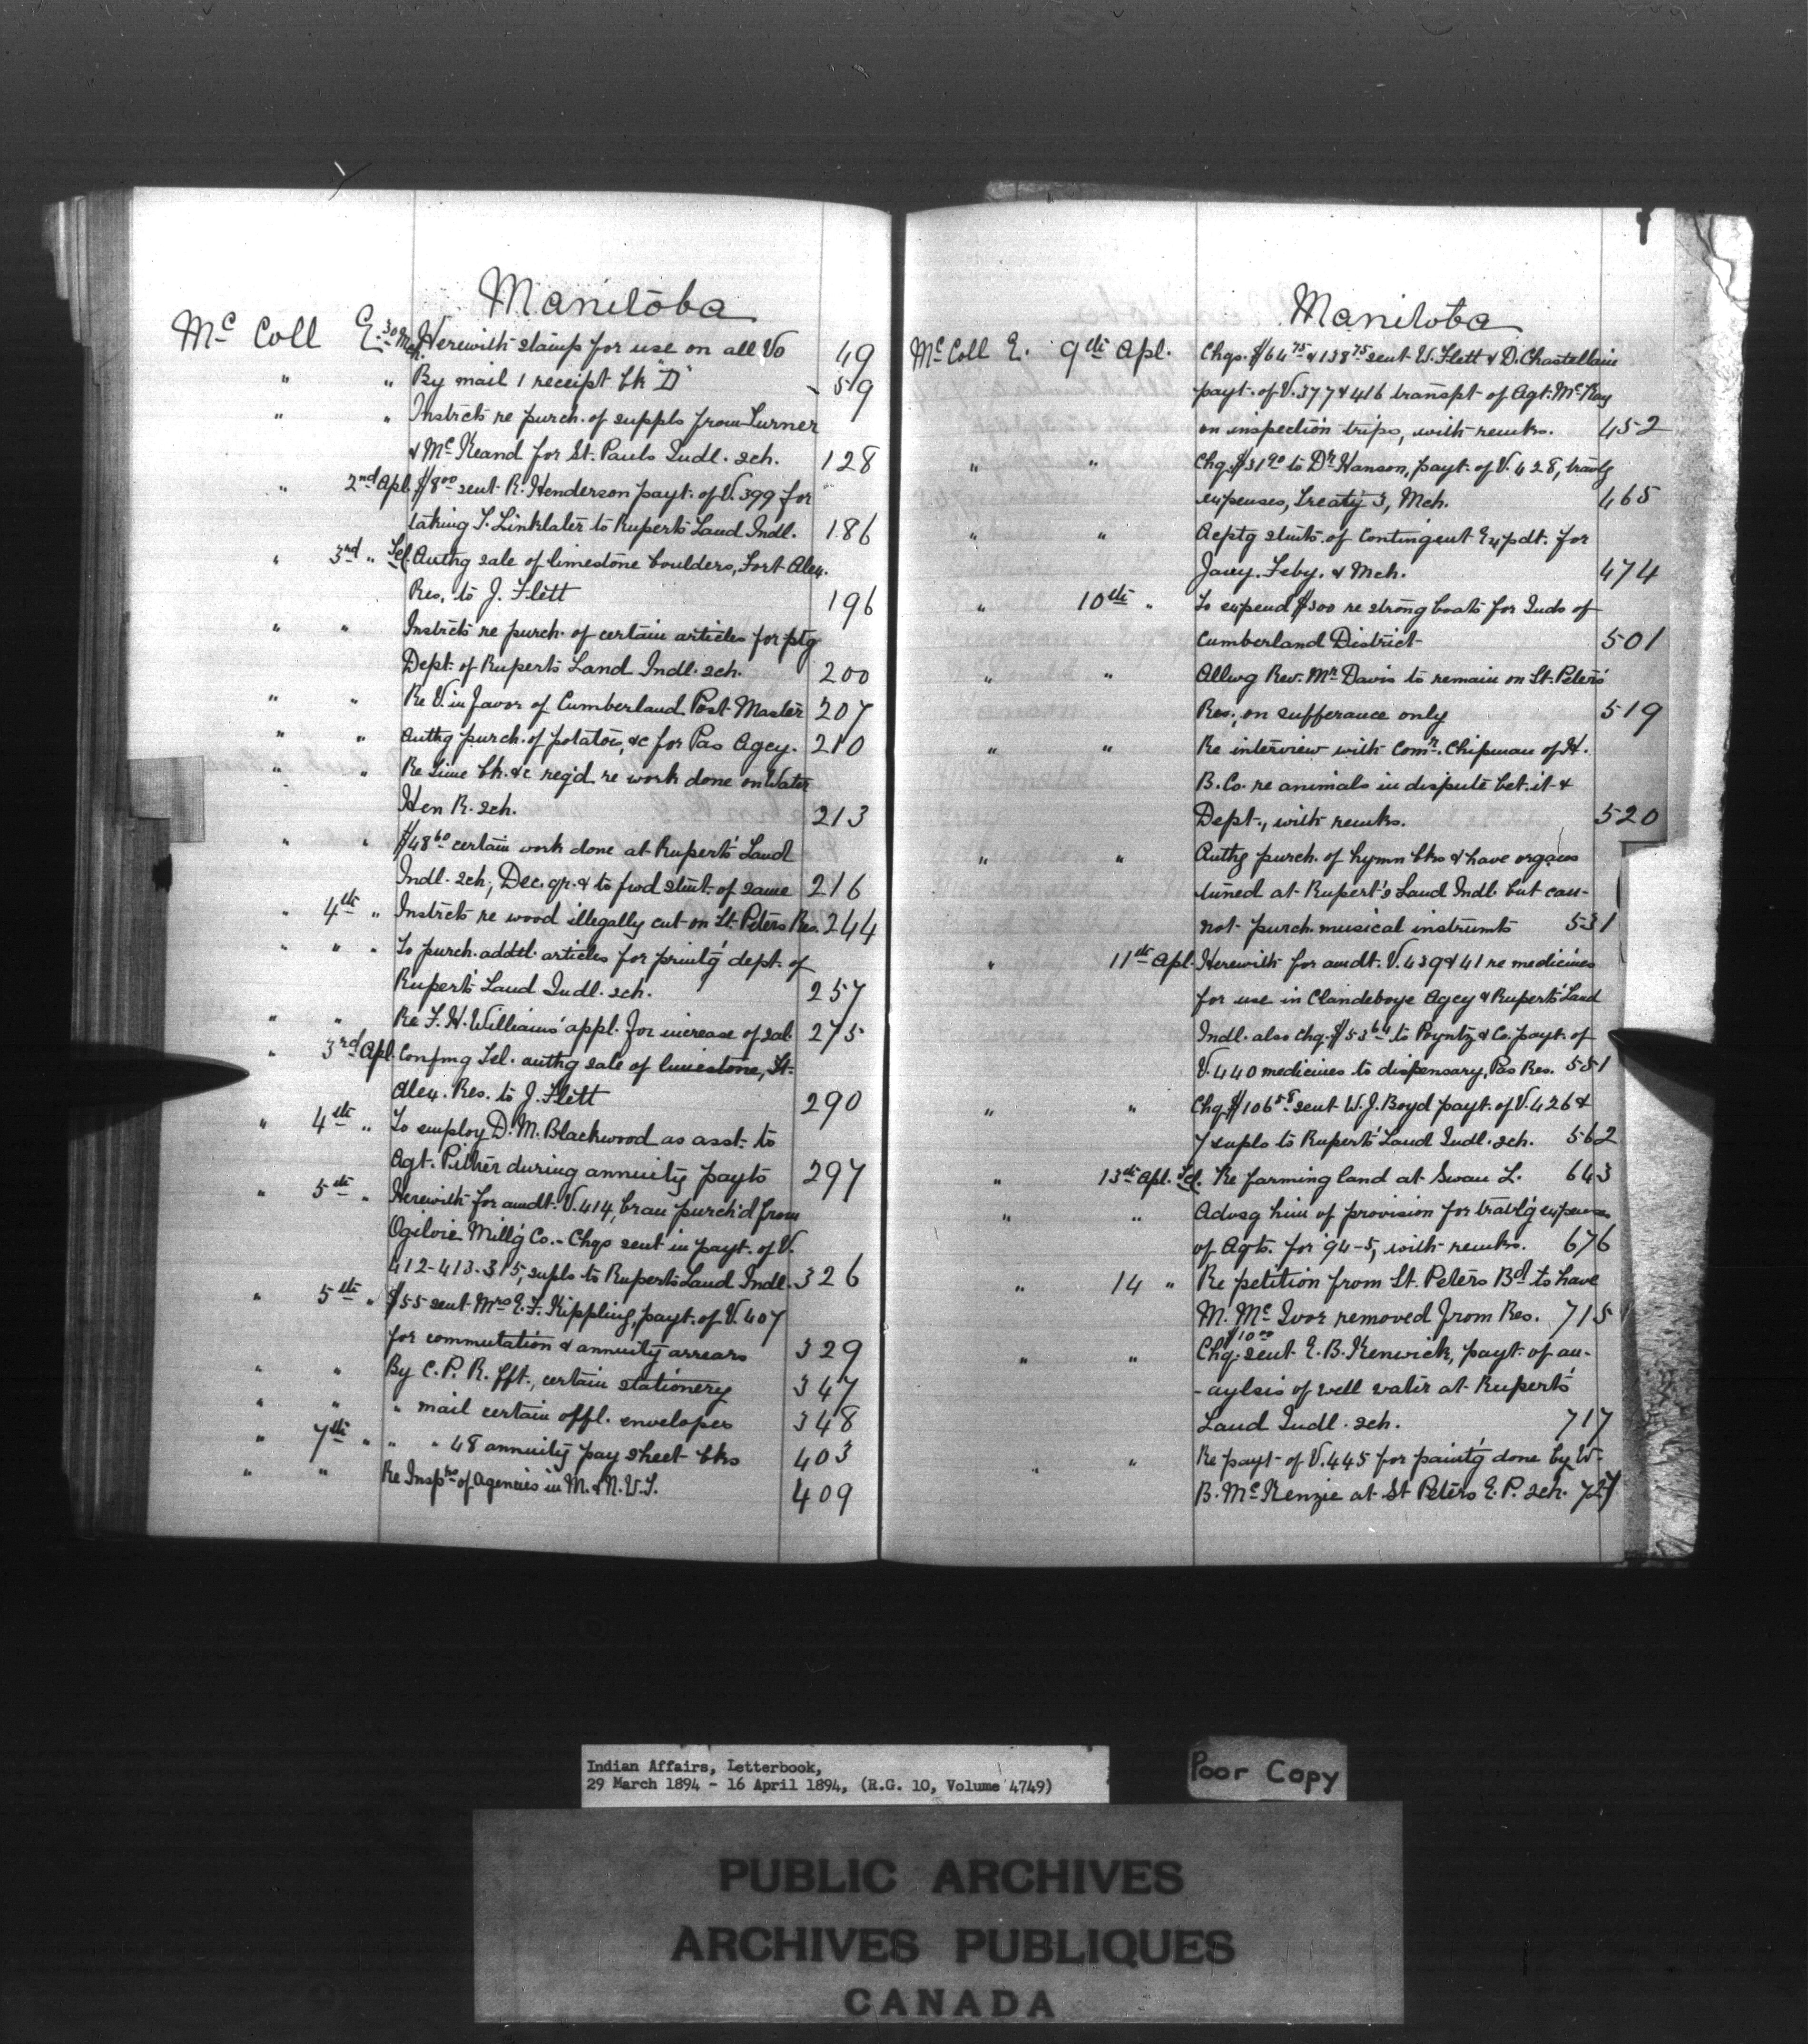 Manitoba
Mc Coll E. 30 Mch. Herewith stamp for use on all Vo 49
" " By mail 1 receipt bk "D" 59
" " Instrcts re purch. of suppls from Turner
& McKeand for St. Pauls Indl. sch. 128
" 2nd Apl. $8.00 sent R. Henderson payt. of V. 399 for
taking T. Linklater to Ruperts Land Indl. 186
" 3rd " Tel. Authg sale of limestone boulders, Fort Alex.
Res. to J. Flett 196
" " Instrcts re purch. of certain articles for ptg
Dept. of Ruperts Land Indl. sch. 200
" " Re V. in favor of Cumberland Post Master 207
" " Authg purch. of potatoes, &c for Pas Agcy. 210
" " Re time bk. &c reqd re work done on Water
Hen R. sch. 213
" " $48.60 certain work done at Rupert's Land
Indl. sch; Dec. qr. & to fwd stmt. of same 216
" 4th " Instrcts re wood illegally cut on St. Peters Res. 244
" " " To purch. addtl. articles for printg dept. of
Rupert's Land Indl. sch. 257
" " Re F. H. Williams' appl. for increase of sal. 275
" 3rd Apl. Confmg Tel. authg sale of limestone, Ft.
Alex. Res. to J. Flett 290
" 4th " To employ D. M. Blackwood as asst. to
Agt. Pither during annuity payts 297
" 5th " Herewith for amdt. V. 414, bran purch'd from
Ogilvie Millg Co. - Chqs sent in payt. of V.
412-413-315, supls to Ruperts Land Indl. 326
" 5th " $55 sent Mrs E. F. Kippling, payt. of V. 407
for commutation & annuity arrears 329
" " By C. P. R. fft., certain stationery 347
" " " mail certain offl. envelopes 348
" 7th " " " 48 annuity pay sheet bks 403
" " Re Inspns of agencies in M. & N. W. T. 409
Manitoba
McColl E. 9th Apl. Chqs. $64.75 & 138.75 sent W. Flett & D. Chastellain
payt. of V. 377 & 416 transpt. of Agt. McKay
on inspection trips, with remks. 452
" " Chq. $31.90 to Dr Hanson, payt. of V. 428, travlg
expenses, Treaty 3, Mch. 465
" " Acptg stmts. of Contingent Expdt. for
Jany. Feby. & Mch. 474
" 10th " To expend $300 re strong boats for Inds of
Cumberland District 501
" " Allwg Rev. Mr Davis to remain on St. Peters'
Res., on sufferance only 519
" " Re interview with Comr. Chipman of H.
B. Co. re animals in dispute bet. it &
Dept., with remks. 520
" " Authg purch. of hymn bks & have organs
tuned at Rupert's Land Indl. but can-
not purch. musical instrumts 531
" 11th Apl. Herewith for amdt. V. 439 & 41 re medicines
for use in Clandeboye Agcy & Ruperts' Land
Indl. also chq. $53.64 to Poyntz & Co. payt. of
V. 440 medicines to dispensary, Pas Res. 551
" " Chq. $106.58 sent W. J. Boyd payt. of V. 426 &
7 supls to Ruperts' Land Indl. sch. 562
" 13th Apl. Tel. Re farming land at Swan L. 643
" " Advsg him of provision for travlg expenses
of Agts. for '94-5, with remks. 676
" 14 " Re petition from St. Peters Bd to have
M. McIvor removed from Res. 715
" " Chq. $10.00 sent E. B. Kenrick, payt. of an-
-aylsis of well water at Ruperts'
Land Indl. sch. 717
" " Re payt. of V. 445 for paintg done by W.
B. McKenzie at St Peters E. P. sch. 727
Indian Affairs, Letterbook,
29 March 1894 - 16 April 1894, (R.G. 10, Volume 4749)
Poor Copy
PUBLIC ARCHIVES
ARCHIVES PUBLIQUES
CANADA